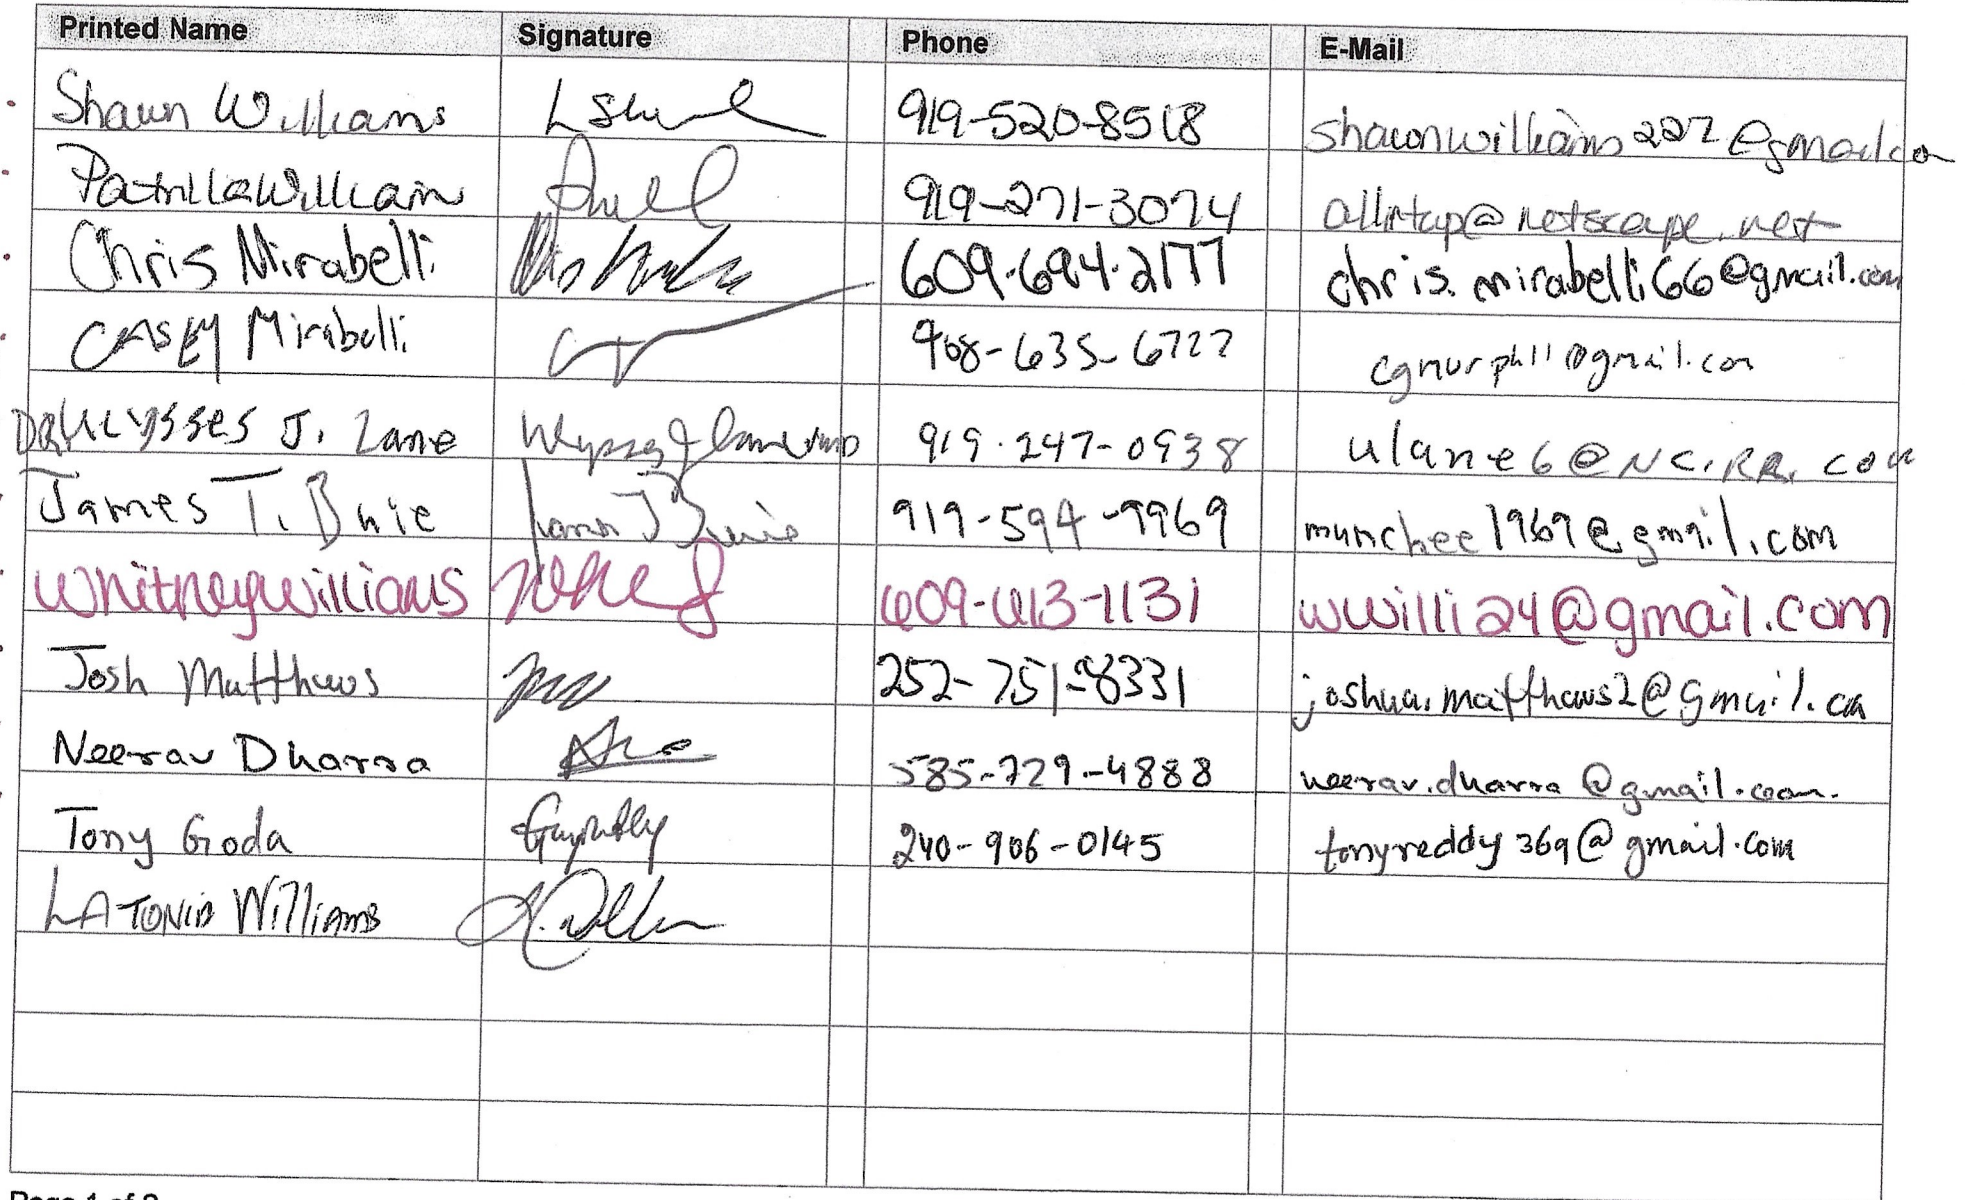 Printed Name Signature Phone E-Mail
Shawn Williams 919-520-8518 shawnwilliams227@gmail.co
William 919-271-3074 @netscape.net
Chris Mirabelli 609.694.2177 chris.mirabelli66@gmail.com
CASEY Mirabelli 908-635-6722 @gmail.com
DR Ulysses J. Lane 919.247-0938 ulane6@NC.RR.com
James T. Buie James T Buie 919-594-9969 munchee1969@gmail.com
Whitney Williams 609-613-1131 wwilli24@gmail.com
Josh Matthews 252-751-8331 joshua.matthews2@gmail.com
Neerav Dharra 585-729-4888 neerav.dharra@gmail.com.
Tony Goda 240-906-0145 tonyreddy369@gmail.com
LATONIA Williams